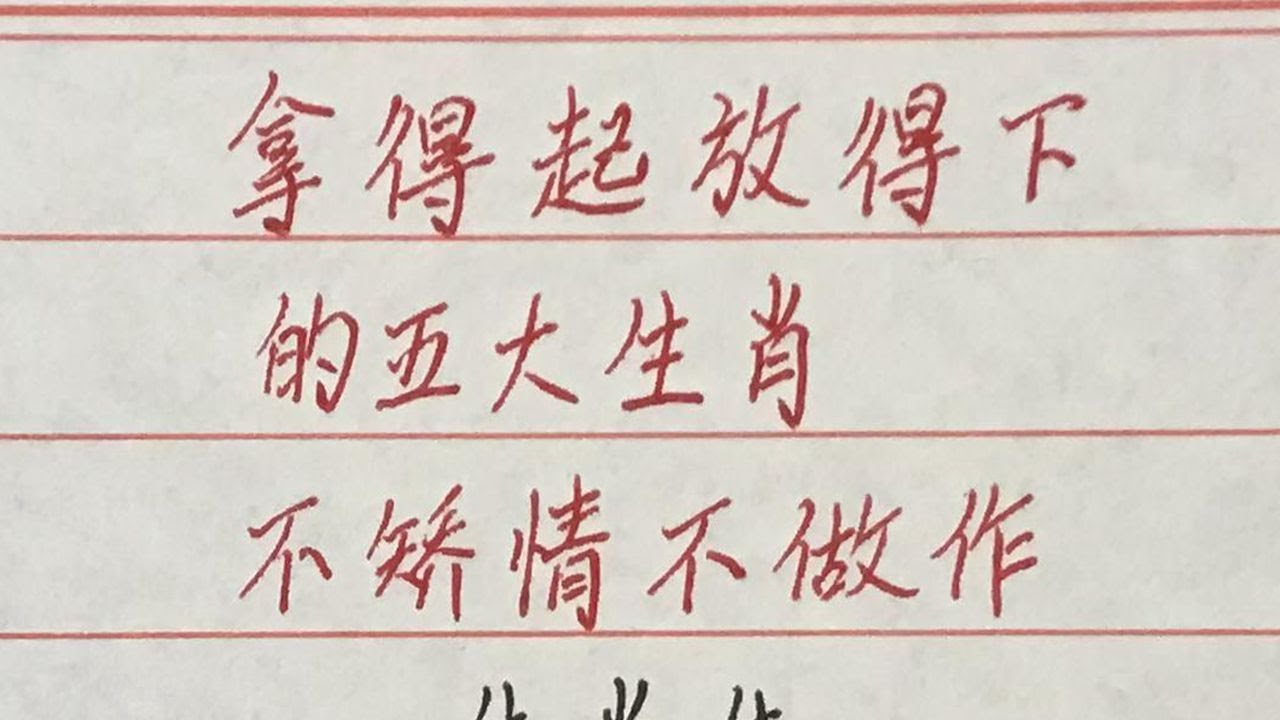 拿得起放得下
的五大生肖
不矫情不做作